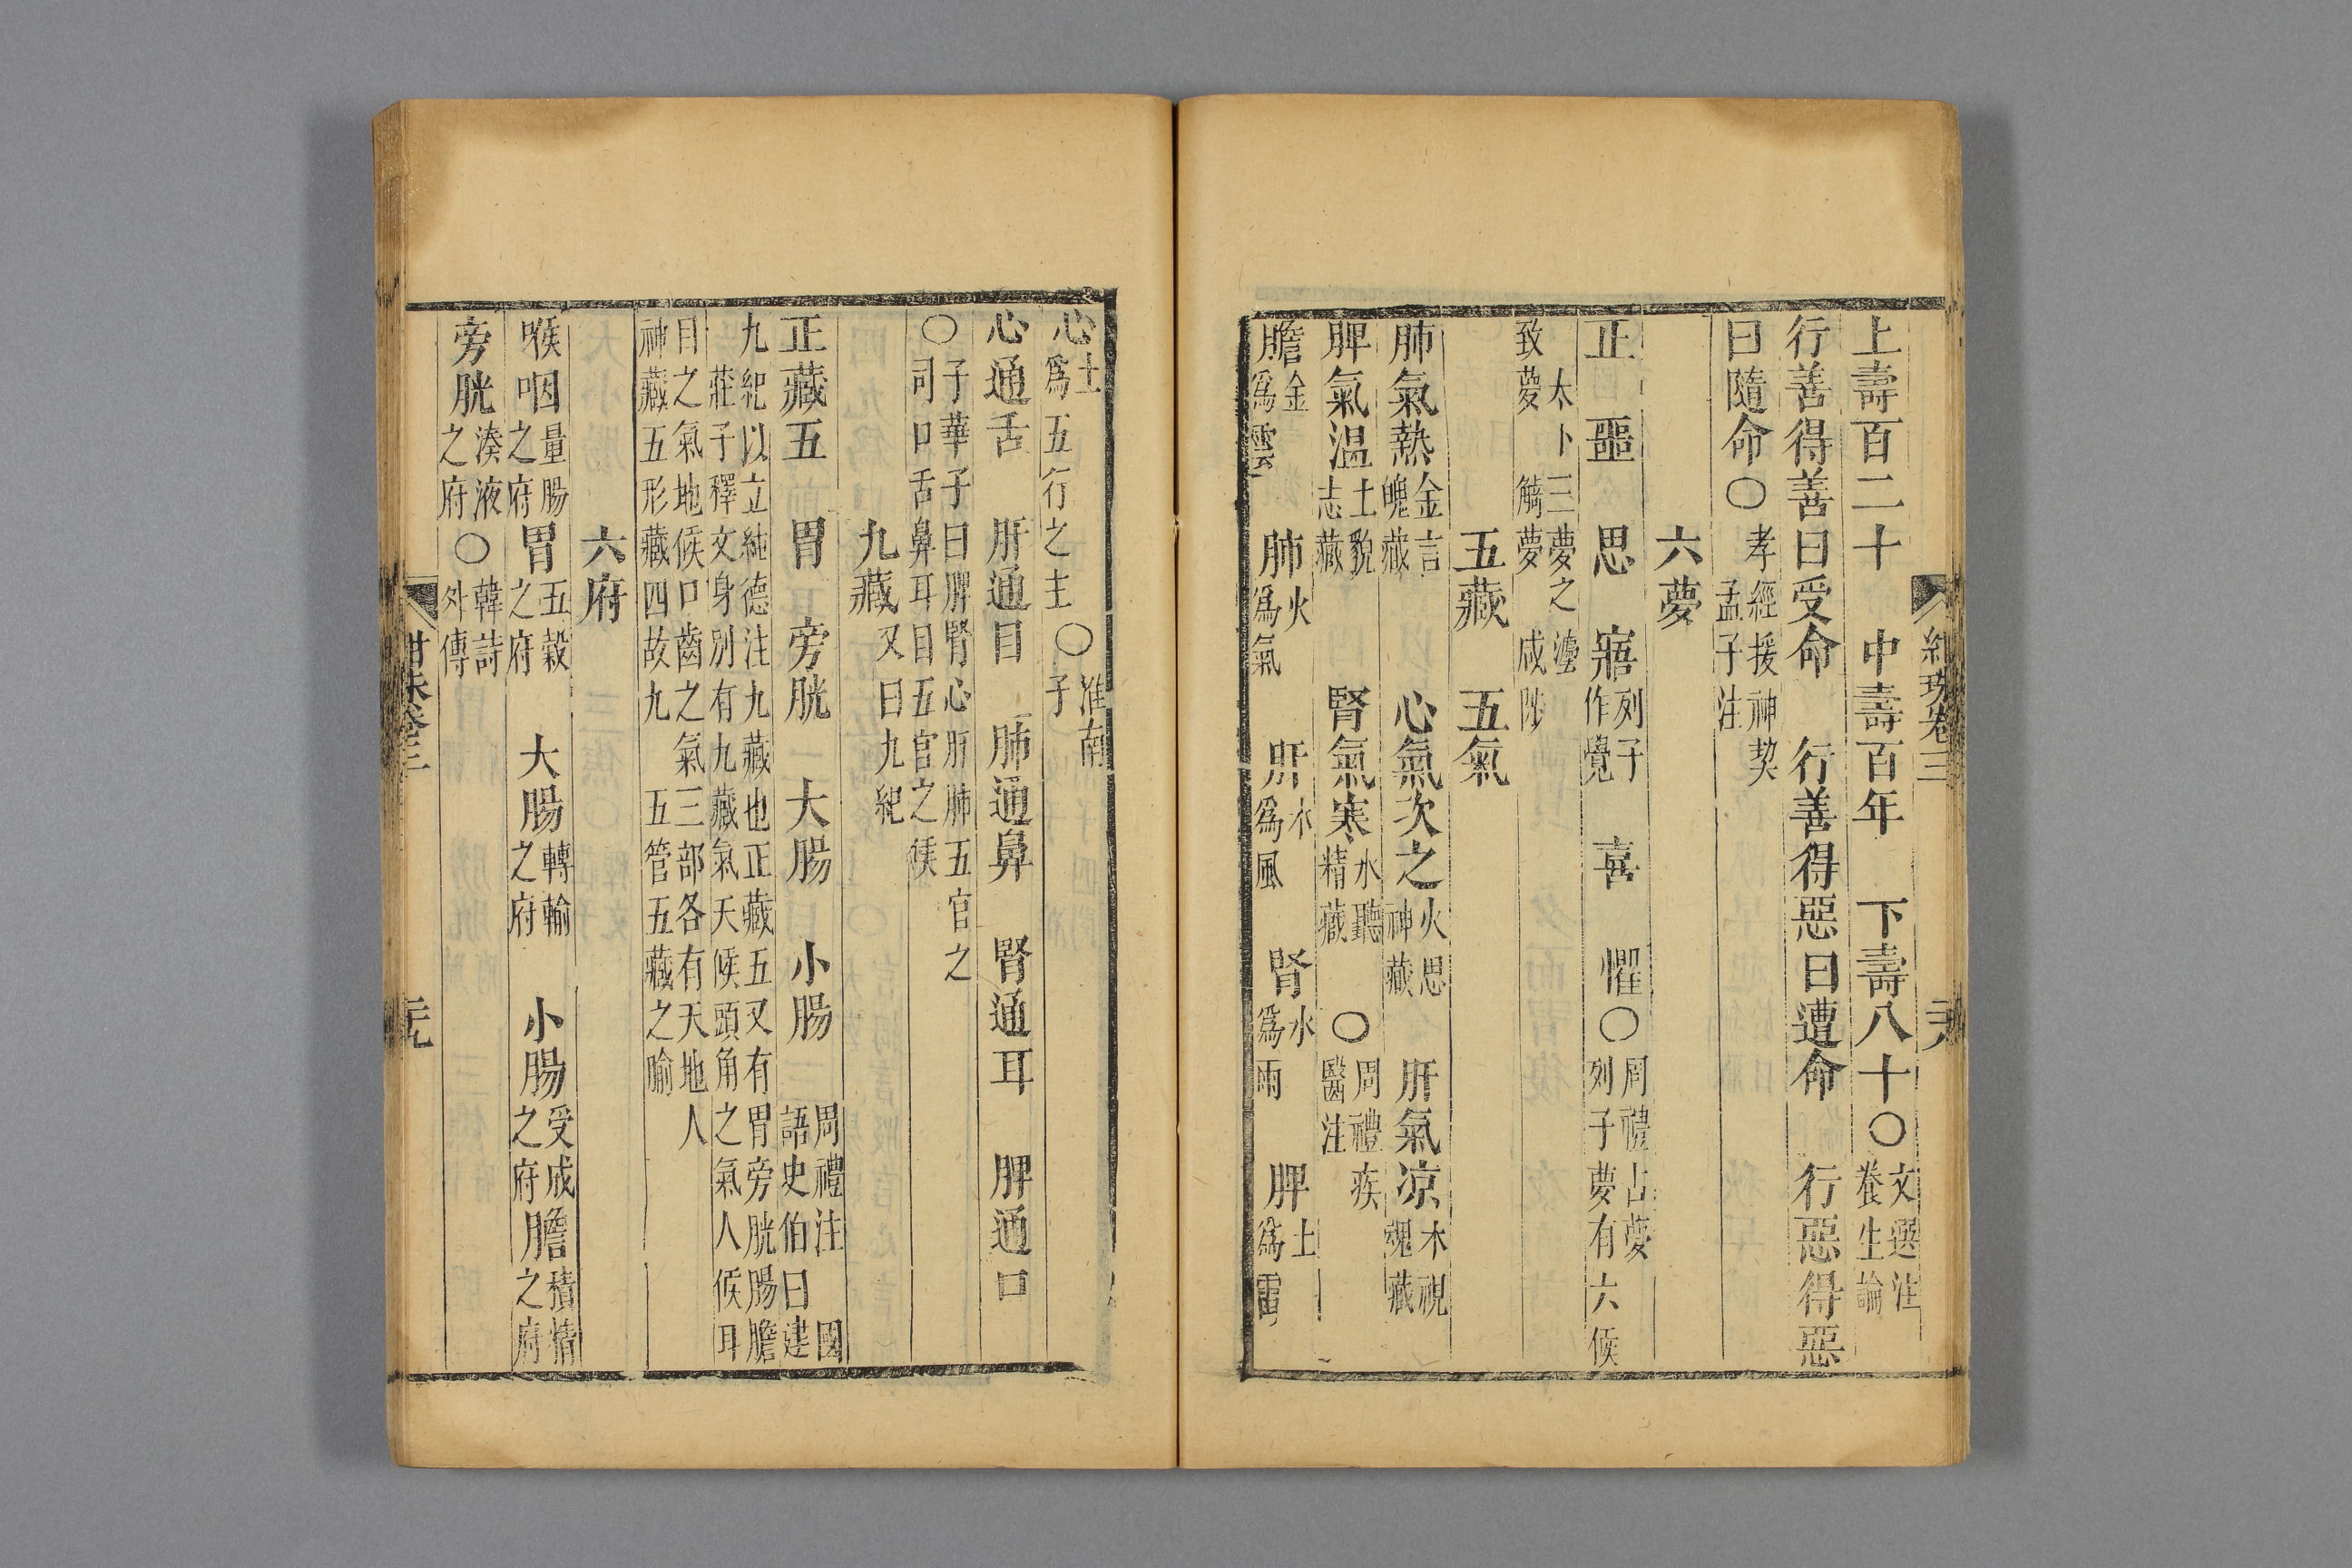 紺珠卷三
上壽百二十　中壽百年　下壽八十〇文選注養生論
行善得善曰受命　行善得惡曰遭命　行惡得惡
曰隨命〇孝經援神契孟子注
六夢
正　噩　思　寤列子作覺　喜　懼〇周禮占夢列子夢有六候
太卜三夢之灋致夢　觭夢　咸陟
五藏　五氣
肺氣熱金言魄藏　心氣次之火思神藏　肝氣凉木視魂藏
脾氣温土貌志藏　腎氣寒水聽精藏　〇周禮疾醫注
膽金爲雲　肺火爲氣　肝木爲風　腎水爲雨　脾土爲雷
心土爲五行之主〇淮南子
心通舌　肝通目　肺通鼻　腎通耳　脾通口
〇子華子曰脾腎心肝肺五官之司口舌鼻耳目五官之候
九藏又曰九紀
正藏五　胃　旁胱　大腸　小腸　周禮注　國語史伯曰建
九紀以立純德注九藏也正藏五又有胃旁胱腸膽莊子釋文身別有九藏氣天候頭角之氣人候耳
目之氣地候口齒之氣三部各有天地人神藏五形藏四故九　五管五藏之喻
六府
喉咽量腸之府　胃五穀之府　大腸轉輸之府　小腸受成之府膽積精之府
旁胱湊液之府〇韓詩外傳